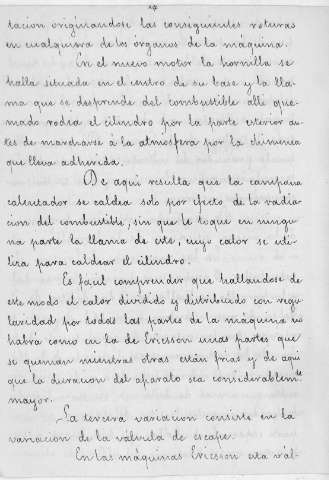 tacion originandose las consiguientes roturas
en cualquiera de los órganos de la máquina.
En el nuevo motor la hornilla se
halla situada en el centro de su base y la lla-
ma que se desprende del combustible alli que-
mado rodea el cilindro por la parte exterior an-
tes de marcharse á la atmósfera por la chimenea
que lleva adherida.
De aqui resulta que la campana
calentador se caldea solo por efecto de la radia-
cion del combustible, sin que le toque en ningu-
na parte la llama de este, cuyo calor se uti-
liza para caldear el cilindro.
Es facil comprender que hallandose de
este modo el calor dividido y distribuido con regu-
laridad por todas las partes de la máquina no
habrá como en la de Ericsson unas partes que
se queman mientras otras están frias y de aqui
que la duracion del aparato sea considerablemte
mayor.
La tercera variacion consiste en la
variacion de la válvula de escape.
En las máquinas Ericsson esta vál-